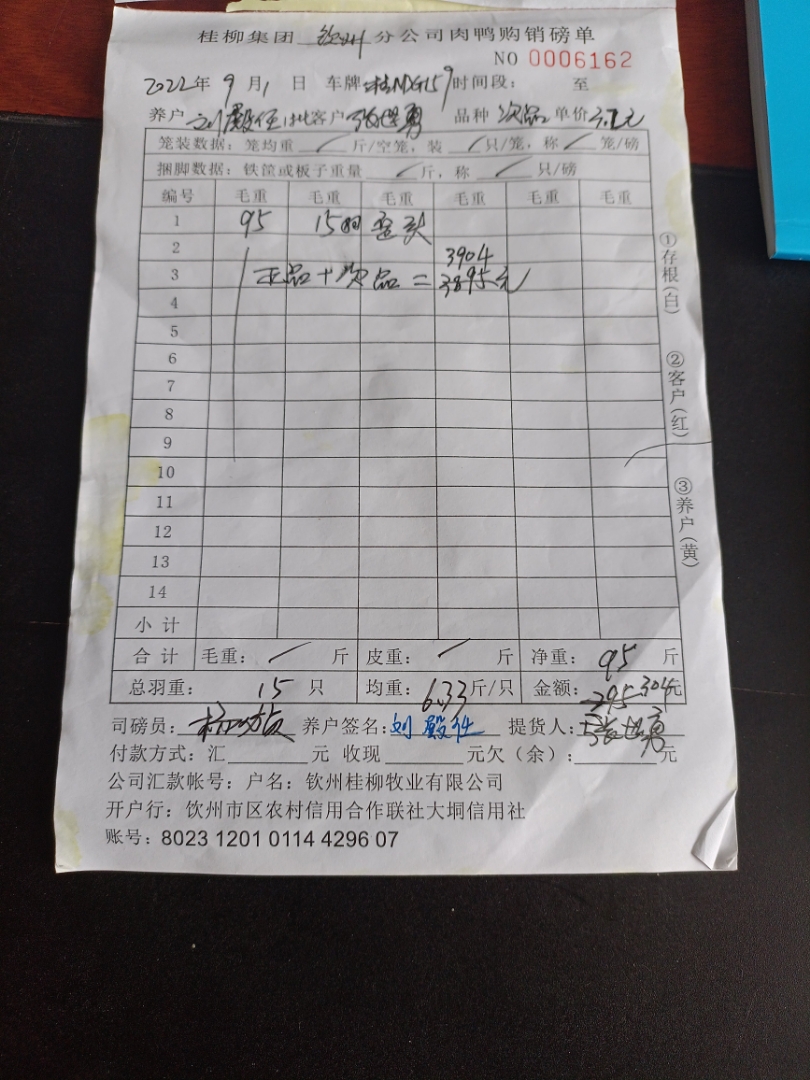 桂柳集团 钦州 分公司肉鸭购销磅单
NO 0006162
2022年 9 月 1 日 车牌 桂NDG159 时间段: 至
养户 刘殿任 批客户 张世勇 品种 次品 单价 3.2元
笼装数据: 笼均重 / 斤/空笼, 装 / 只/笼, 称 / 笼/磅
捆脚数据: 铁筐或板子重量 / 斤, 称 / 只/磅
编号 毛重 毛重 毛重 毛重 毛重 毛重
1 95 15只 歪头
2 3904
3 正品+次品=3895元
4
5
6
7
8
9
10
11
12
13
14
小计
合计 毛重: / 斤 皮重: / 斤 净重: 95 斤
总羽重: 15 只 均重: 6.33斤/只 金额: 295 304元
司磅员: 养户签名: 刘殿任 提货人: 张世勇
付款方式: 汇 元 收现 元欠(余): 元
公司汇款帐号: 户名: 钦州桂柳牧业有限公司
开户行: 钦州市区农村信用合作联社大垌信用社
账号: 8023 1201 0114 4296 07
①存根(白)
②客户(红)
③养户(黄)